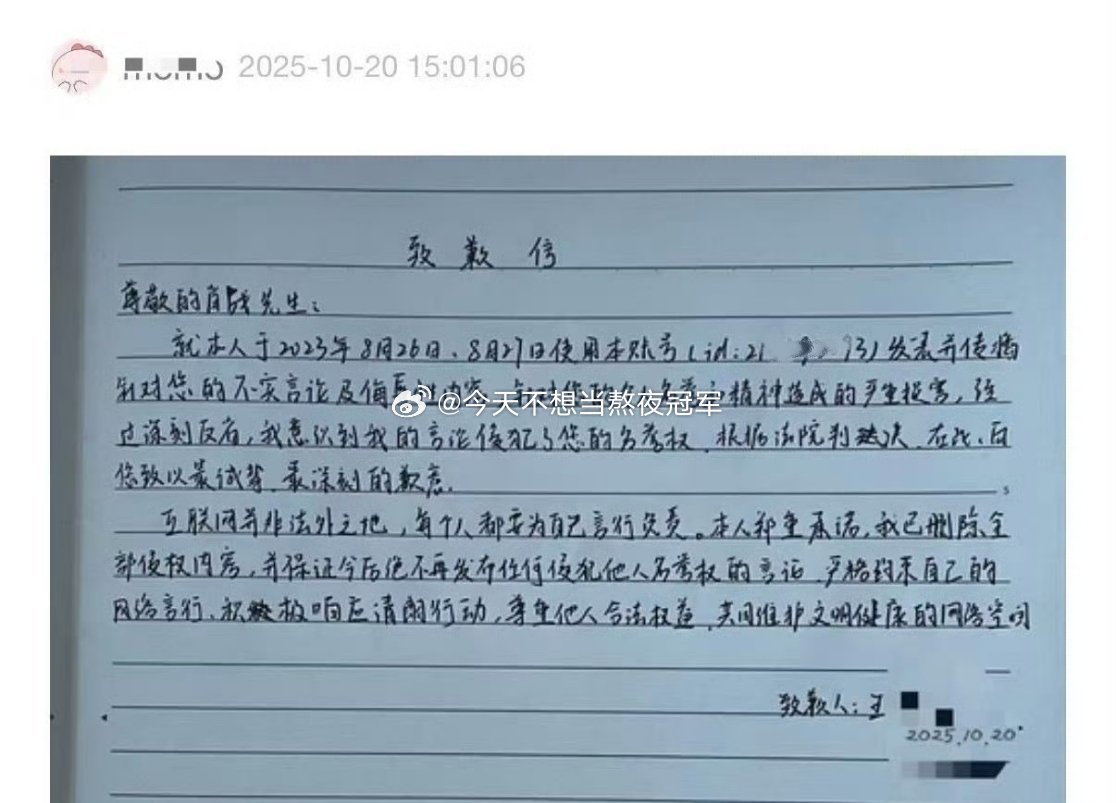 2025-10-20 15:01:06
致歉信
尊敬的肖战先生：
就本人于2023年8月26日、8月27日使用本账号(id:21 93)发表并传播
针对您的不实言论及侮辱 内容 精神造成的严重损害，经
过深刻反省，我意识到我的言论侵犯了您的名誉权，根据法院判决，在此，向
您致以最诚挚、最深刻的歉意。
互联网并非法外之地，每个人都要为自己言行负责。本人郑重承诺，我已删除全
部侵权内容，并保证今后绝不再发布任何侵犯他人名誉权的言论，严格约束自己的
网络言行、积极响应清朗行动，尊重他人合法权益，共同维护文明健康的网络空间
致歉人：王
2025.10.20
@今天不想当熬夜冠军